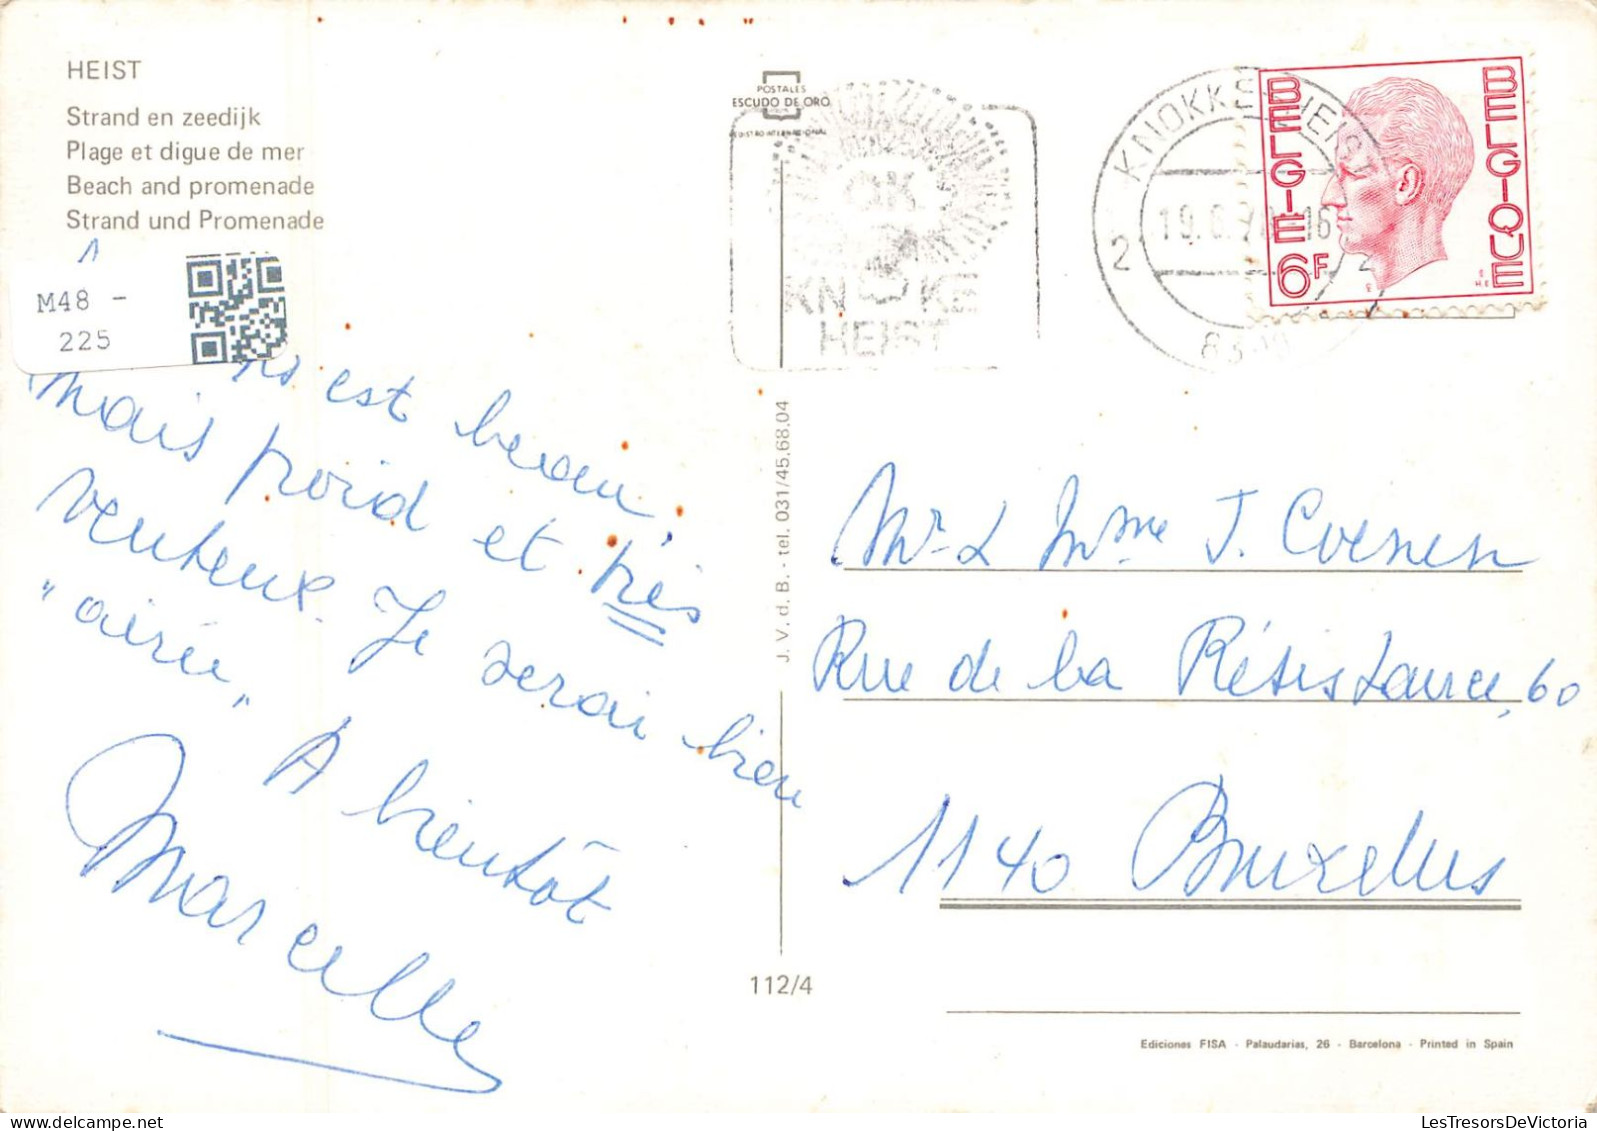 HEIST
Strand en zeedijk
Plage et digue de mer
Beach and promenade
Strand und Promenade
M48 -
225
est beau,
mais froid et très
venteux. Je serai bien
"airée". A bientôt
Marcelle
POSTALES
ESCUDO DE ORO
REGISTRO INTERNACIONAL
OK
KNOKKE
HEIST
KNOKKE-HEIST
2 2
BELGIE
BELGIQUE
6F
J. V. d. B. - tel. 031/45.68.04
Mr & Mme J. Coenen
Rue de la Résistance, 60
1140 Bruxelles
112/4
Ediciones FISA - Palaudarias, 26 - Barcelona - Printed in Spain
LesTresorsDeVictoria